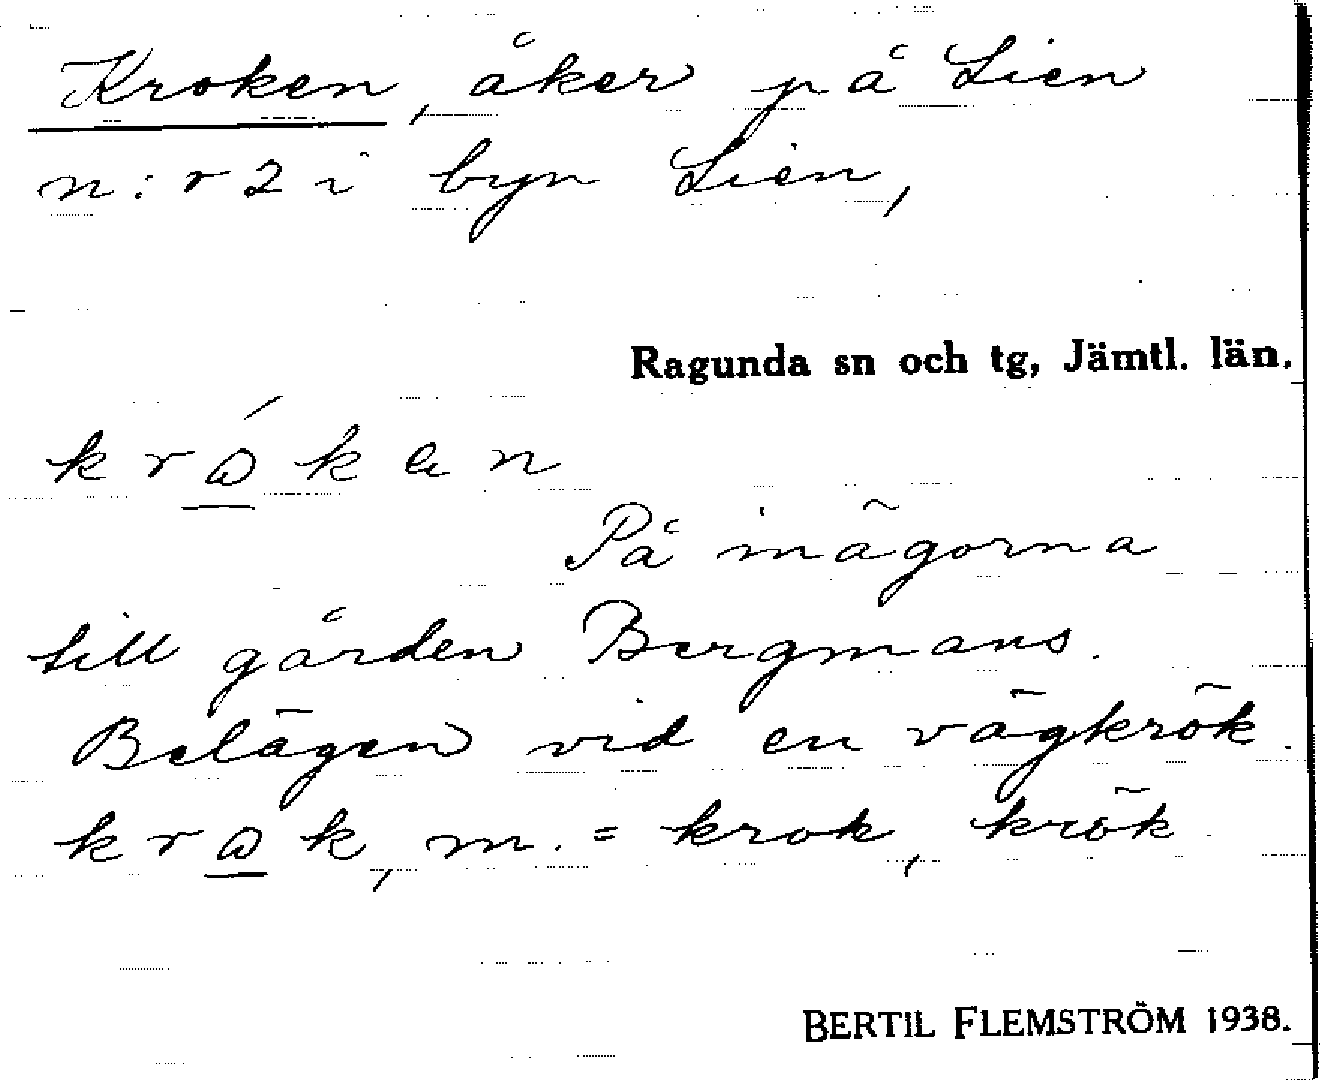 Kroken, åker på Lien
n:r 2 i byn Lien,
Ragunda sn och tg, Jämtl. län.
krɷ́kɑn
På inägorna
till gården Bergmans.
Belägen vid en vägkrök.
krɷk, m. = krok, krök
BERTIL FLEMSTRÖM 1938.